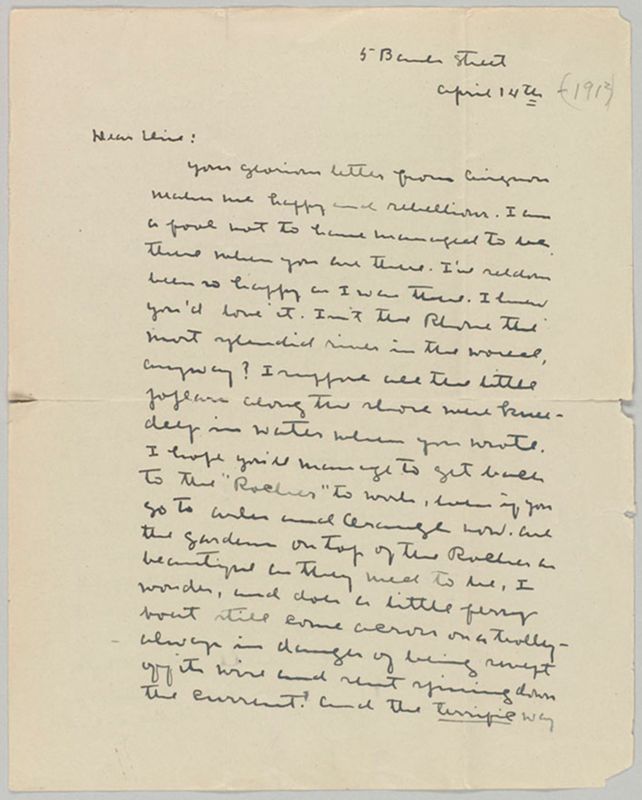 5 Bank Street
April 14th (1912)
Dear Elsie:
Your glorious letter from Avignon
makes me happy and rebellious. I am
a fool not to have managed to be
there when you are there. I've seldom
been so happy as I was there. I knew
you'd love it. Isn't the Rhone the
most splendid river in the world,
anyway? I suppose all the little
poplars along the shore were knee-
deep in water when you wrote.
I hope you'll manage to get back
to the "Rocher" to work, even if you
go to Arles and Orange now. Are
the gardens on top of the Rocher as
beautiful as they used to be, I
wonder, and does a little ferry
boat still come across on a trolley -
always in danger of being swept
off its wire and sent spinning down
the current? And the terrific way